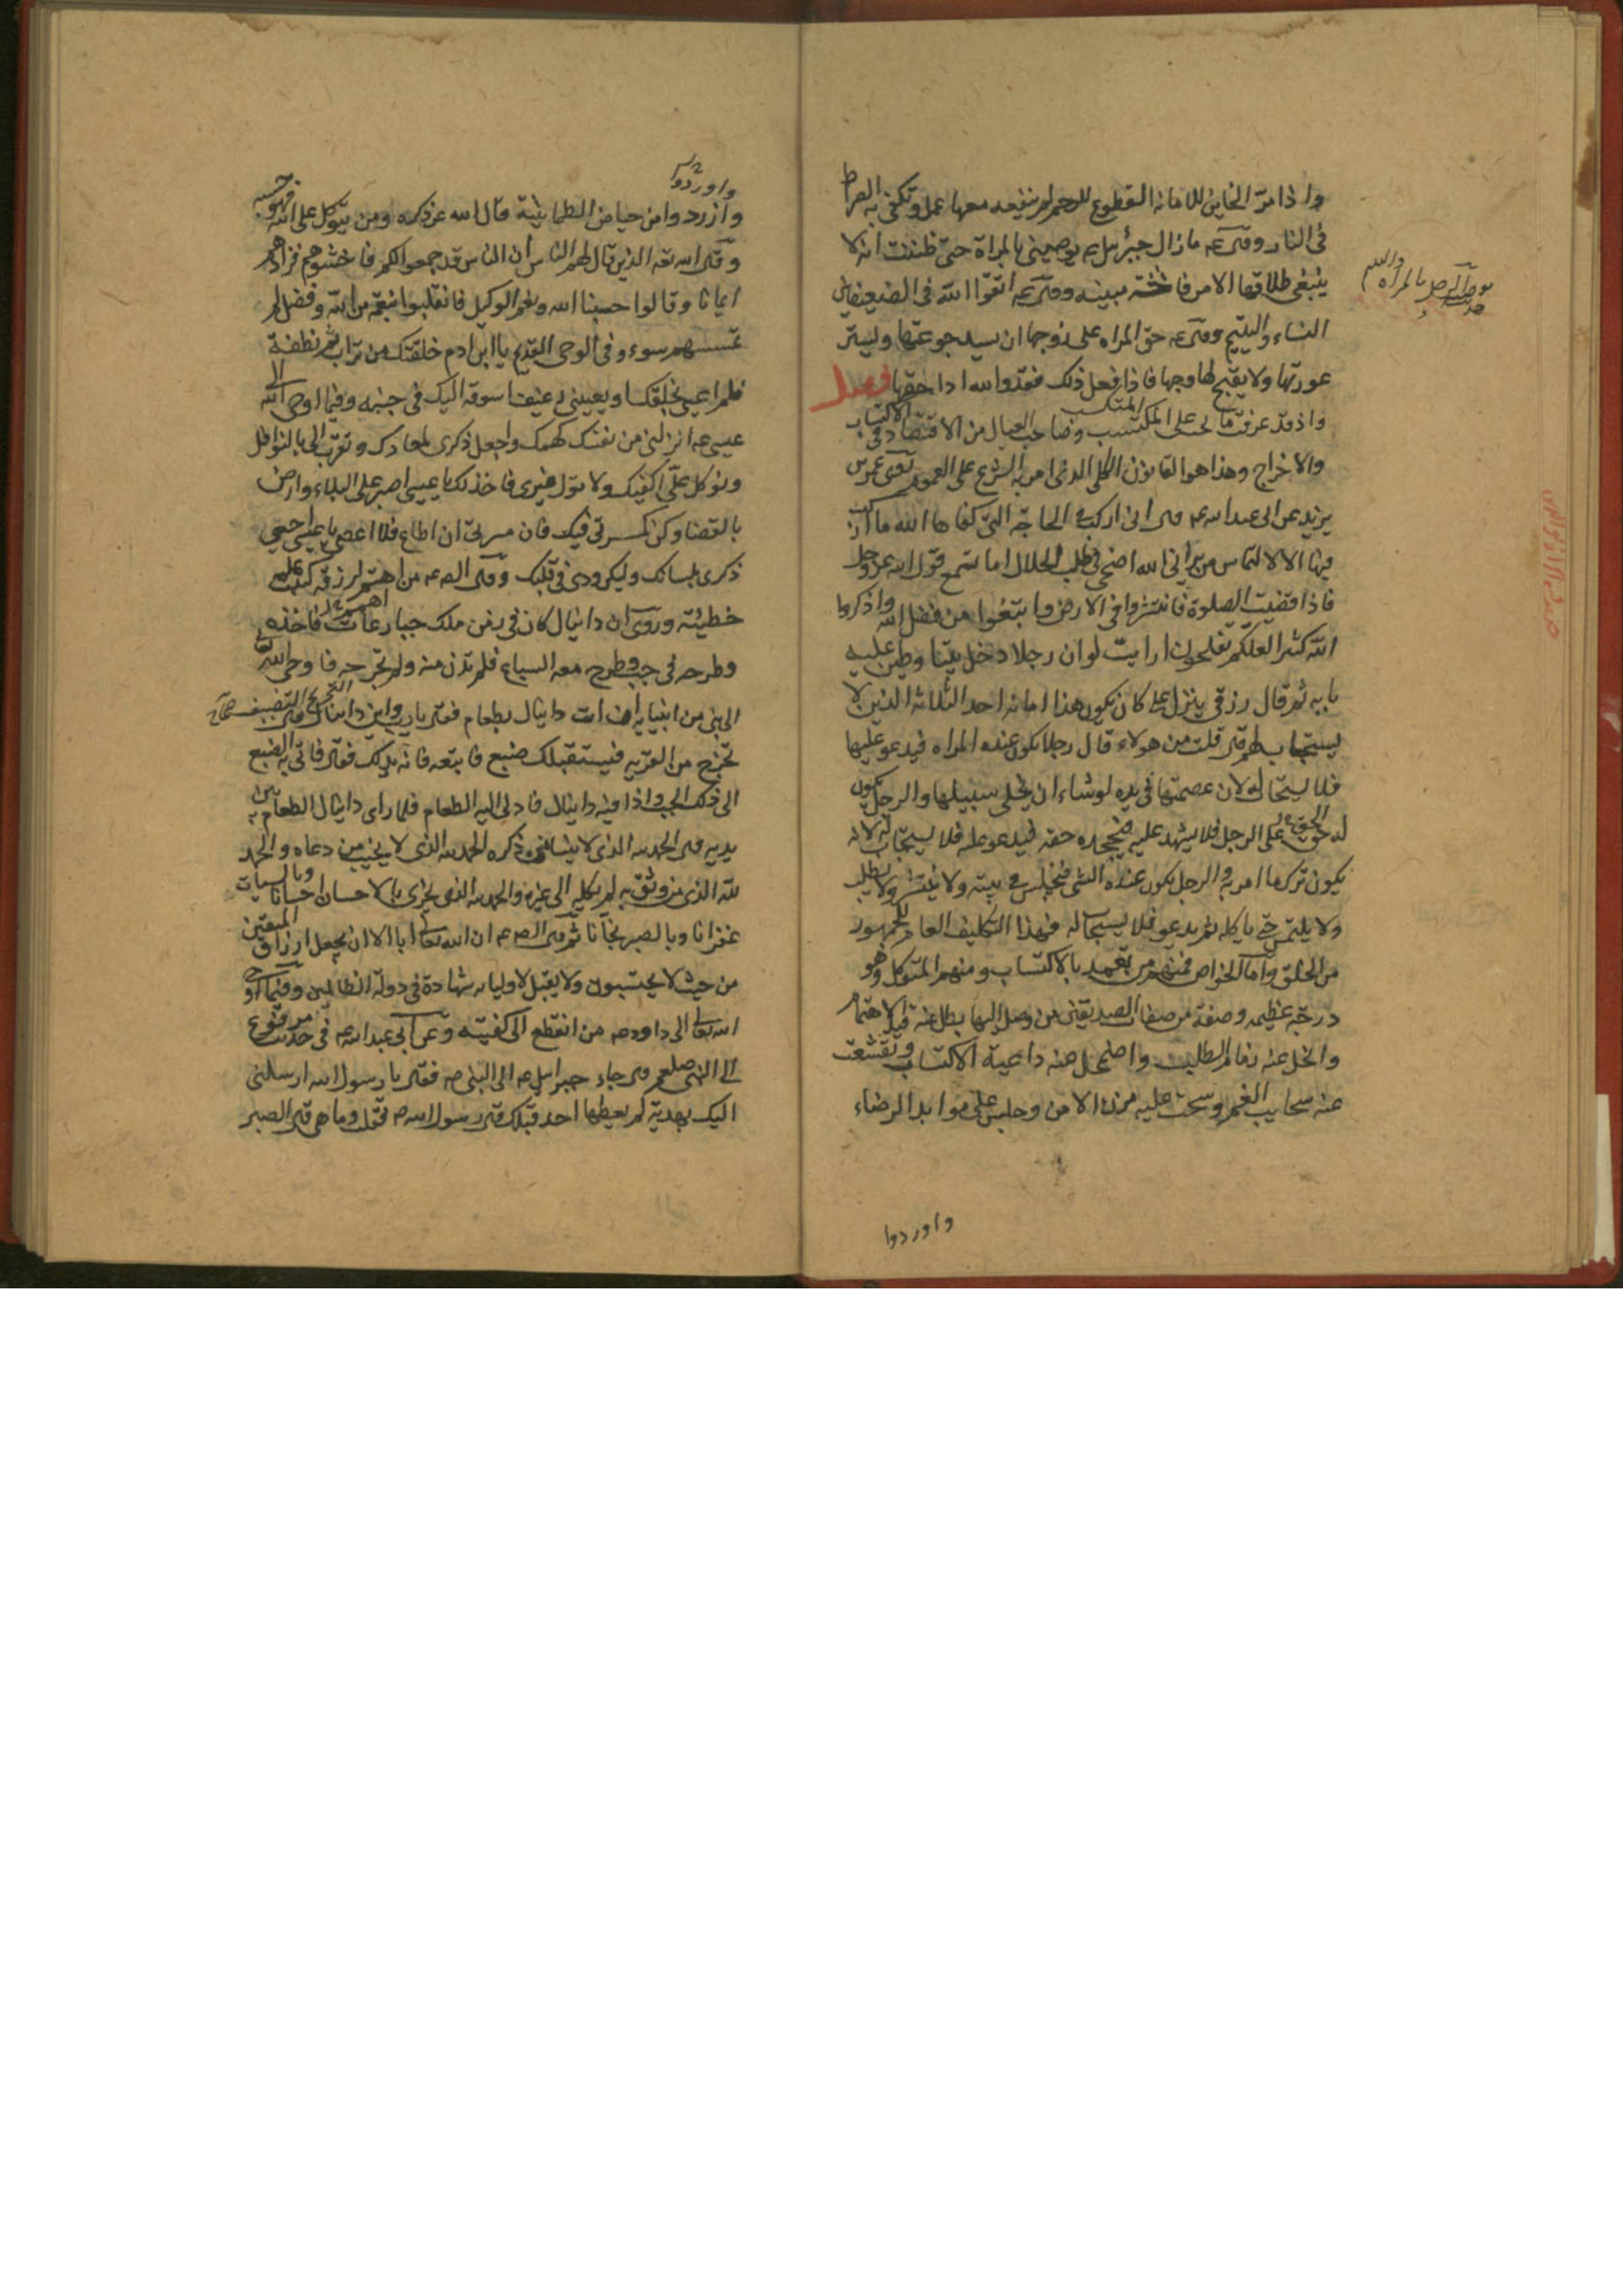 واذا مرّ الخاين للامانة القطوع للرحم لم ينفعه معهما عمل وتكفى به الصراط
فى النار وقى عه مازال جبرئيل يوصينى بالمراة حتى ظننت انه لا
ينبغى طلاقها الا من فاحشة مبينه وقى عه اتقوا الله فى الضعيفين
النساء واليتيم وقى عه حق المراه على زوجها ان يسد جوعتها ويستر
عورتها ولا يقبح لها وجها فاذا فعل ذلك فقد والله ادا حقها فصل
واذ قد عرفت ما على المكتسب وصاحب العيال من الاقتصاد فى الاكتساب
والاخراج وهذا هو القانون الكلى الذى امر به الشرع على العموم عمر بن
يزيد عن ابى عبد الله عه قى انى اركب فى الحاجة التى كفاها الله ما اركب
فيها الا لالتماس من يرانى الله اضحى فى طلب الحلال اما تسمع قول الله عز وجل
فاذا قضيت الصلوة فانتشروا فى الارض وابتغوا من فضل الله واذكروا
الله كثيرا لعلكم تفلحون ارايت لو ان رجلا دخل بيتا وطين عليه
بابه ثم قال رزقى ينزل على كان يكون هذا اما انه احد الثلاثة الذين لا
يستجاب لهم قى قلت من هولاء قال رجل يكون عنده المراه فيدعو عليها
فلا يستجاب له لان عصمتها فى يده لو شاء ان يخلى سبيلها والرجل يكون
له الحق على الرجل فلا يشهد عليه فيجحده حقه فيدعو عليه فلا يستجاب له لانه
يكون ترك ما امر به والرجل يكون عنده الشى فيجلس فى بيته ولا ينتشر ولا يطلب
ولا يلتمس حتى ياكله ثم يدعو فلا يستجاب له فهذا التكليف العام للجمهور
من الخلق واما الخواص فمنهم من تعبد بالاكتساب ومنهم المتوكل وهو
درجة عظيمه وصفة من صفات الصديقين من وصل اليها بطل عنه قيد الاهتمام
وانحل عنه زمام الطلب واضمحل عنه داعية الاكتساب وتقشعت
عنه سحايب الغم وسحت عليه مزن الامن وجلس على موايد الرضاء
واوردوا
واوردوا
وازردوا من حياض الطمانينة قال الله عز ذكره ومن يتوكل على الله فهو حسبه
وقى الله تعه الذين قال لهم الناس ان الناس قد جمعوا لكم فاخشوهم فزادهم
ايمانا وقالوا حسبنا الله ونعم الوكيل فانقلبوا بنعمة من الله وفضل لم
يمسسهم سوء وفى الوحى القديم يا ابن ادم خلقتك من تراب ثم نطفة
فلم اعى بخلقك او يعيينى رغيف اسوقه اليك فى حينه وفيما اوحى الله الى
عيسى عه انزلنى من نفسك كهمك واجعل ذكرى لمعادك وتقرب الى بالنوافل
وتوكل على اكفيك ولا تول غيرى فاخذلك يا عيسى اصبر على البلاء وارض
بالقضا وكن كمسرتى فيك فان مسرتى ان اطاع فلا اعصى يا عيسى احيى
ذكرى بلسانك وليكن ودى فى قلبك وقى الص عه من اهتم لرزقه كتب عليه
خطيئته وروى ان دانيال كان فى زمن ملك جبار عات فاخذه
وطرحه فى جب وطرح معه السباع فلم تدن منه ولم تجرحه فاوحى الله تعالى
الى نبى من انبيايه ان ات دانيال بطعام فقى يا رب واين دانيال قى
تخرج من القرية فيستقبلك ضبع فاتبعه فانه يدلك فقال فاتى به الضبع
الى ذلك الجب واذا فيه دانيال فادلى اليه الطعام فلما راى دانيال الطعام بين
يديه قى الحمد لله الذى لا ينسى من ذكره الحمد لله الذى لا يخيب من دعاه والحمد
لله الذى من وثق به لم يكله الى غيره والحمد لله الذى يجزى بالاحسان احسانا وبالسيئات
غفرانا وبالصبر نجاتا ثم قى الص عه ان الله تعالى ابا الا ان يجعل ارزاق المتقين
من حيث لا يحتسبون ولا يقبل لاوليائه شهادة فى دولة الظالمين وفيما اوحى
الله تعالى الى داود عه من انقطع الى كفيته وعن ابى عبد الله عه فى حديث مرفوع
الى النبى صلعم قى جاء جبرايل عه الى النبى ص فقى يا رسول الله ارسلنى
اليك بهدية لم يعطها احد قبلك قى رسول الله ص فقلت وما هى قى الصبر